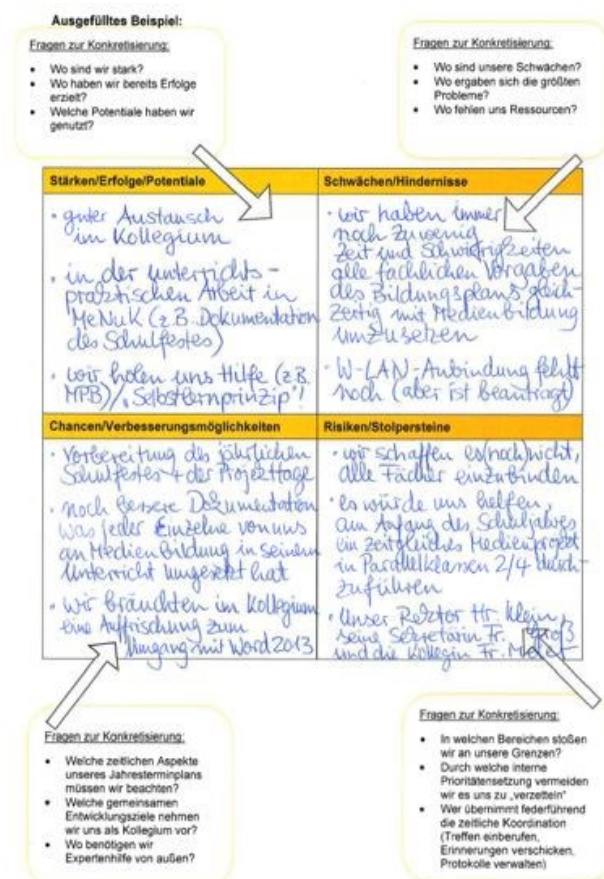 Ausgefülltes Beispiel:
Fragen zur Konkretisierung:
• Wo sind wir stark?
• Wo haben wir bereits Erfolge
erzielt?
• Welche Potentiale haben wir
genutzt?
Fragen zur Konkretisierung:
• Wo sind unsere Schwächen?
• Wo ergaben sich die größten
Probleme?
• Wo fehlen uns Ressourcen?
Stärken/Erfolge/Potentiale
• guter Austausch
im Kollegium
• in der unterrichts-
praktischen Arbeit in
MeNuK (z.B. Dokumentation
des Schulfestes)
• wir holen uns Hilfe (z.B.
MPB)/„Selbstlernprinzip"!
Schwächen/Hindernisse
• wir haben immer
noch zuwenig
Zeit und Schwierigkeiten
alle fachlichen Vorgaben
des Bildungsplans gleich-
zeitig mit Medienbildung
umzusetzen
• W-LAN-Anbindung fehlt
noch (aber ist beantragt)
Chancen/Verbesserungsmöglichkeiten
• Vorbereitung des jährlichen
Schulfestes + der Projekttage
• noch bessere Dokumentation
was jeder Einzelne von uns
an Medienbildung in seinem
Unterricht umgesetzt hat
• wir bräuchten im Kollegium
eine Auffrischung zum
Umgang mit Word 2013
Risiken/Stolpersteine
• wir schaffen es (noch) nicht,
alle Fächer einzubinden
• es würde uns helfen,
am Anfang des Schuljahres
ein zeitgleiches Medienprojekt
in Parallelklassen 2/4 durch-
zuführen
• Unser Rektor Hr. Klein,
seine Sekretärin Fr.
und die Kollegin Fr.
Fragen zur Konkretisierung:
• Welche zeitlichen Aspekte
unseres Jahresterminplans
müssen wir beachten?
• Welche gemeinsamen
Entwicklungsziele nehmen
wir uns als Kollegium vor?
• Wo benötigen wir
Expertenhilfe von außen?
Fragen zur Konkretisierung:
• In welchen Bereichen stoßen
wir an unsere Grenzen?
• Durch welche interne
Prioritätensetzung vermeiden
wir es uns zu „verzetteln"
• Wer übernimmt federführend
die zeitliche Koordination
(Treffen einberufen,
Erinnerungen verschicken,
Protokolle verwalten)